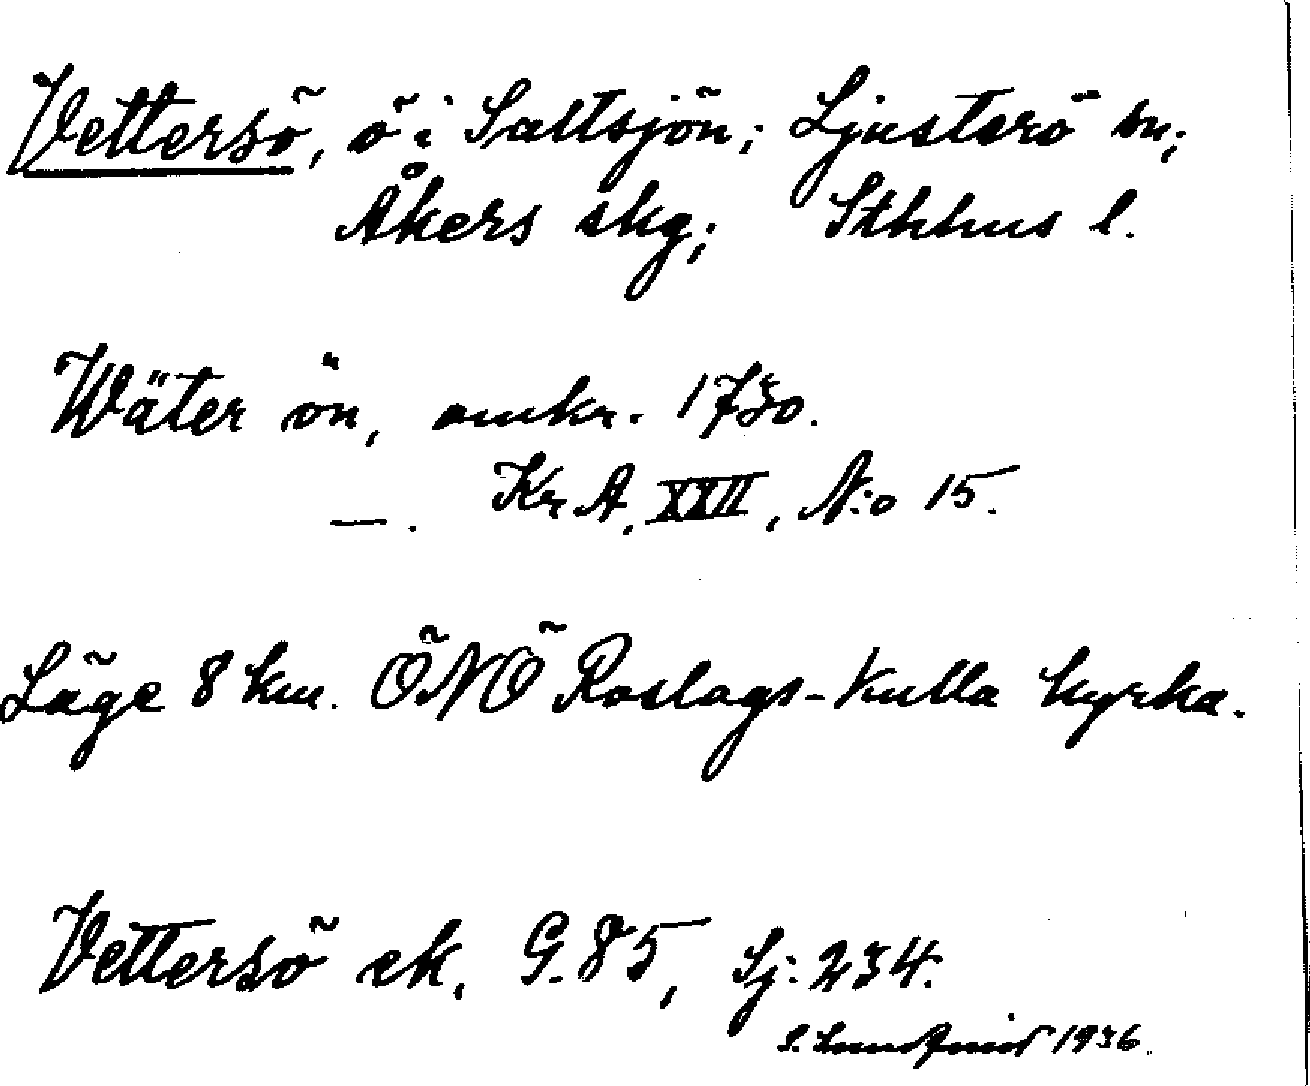 Vettersö, ö i Saltsjön; Ljusterö sn;
Åkers skg; Sthlms l.
Wäter ön, omkr. 1730.
—. Kr A, XXII, N:o 15.
Läge 8 km. ÖNÖ Roslags-Kulla kyrka.
Vettersö ek. G. 85, Sj: 234.
S. Sundqvist 1936.